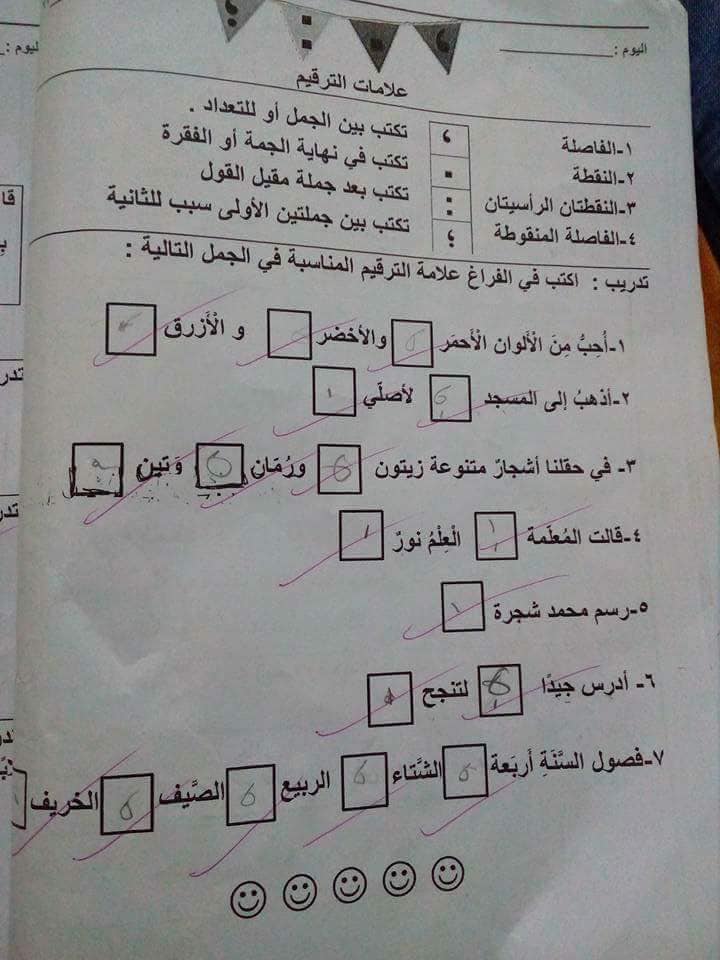 اليوم : ____________
علامات الترقيم
١-الفاصلة ، تكتب بين الجمل أو للتعداد .
٢-النقطة . تكتب في نهاية الجمة أو الفقرة
٣-النقطتان الرأسيتان : تكتب بعد جملة مقيل القول
٤-الفاصلة المنقوطة ؛ تكتب بين جملتين الأولى سبب للثانية
تدريب : اكتب في الفراغ علامة الترقيم المناسبة في الجمل التالية :
١-أُحِبُّ مِنَ الْأَلوان الْأَحمَر ، والأخضر و الْأَزرق .
٢-أذهبُ إلى المسجد ؛ لأصلّي .
٣- في حقلنا أشجارٌ متنوعة زيتون ، ورُمّان ، وَتين .
٤-قالت المُعلّمة : الْعِلْمُ نورٌ .
٥-رسم محمد شجرة .
٦- أدرس جيدًا ؛ لتنجح .
٧-فصول السَّنَةِ أربَعة ، الشَّتاء ، الربيع ، الصَّيف ، الخريف